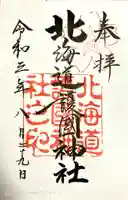 奉拝
北海道護國神社
令和三年八月二十九日
北海道
護國神
社之印